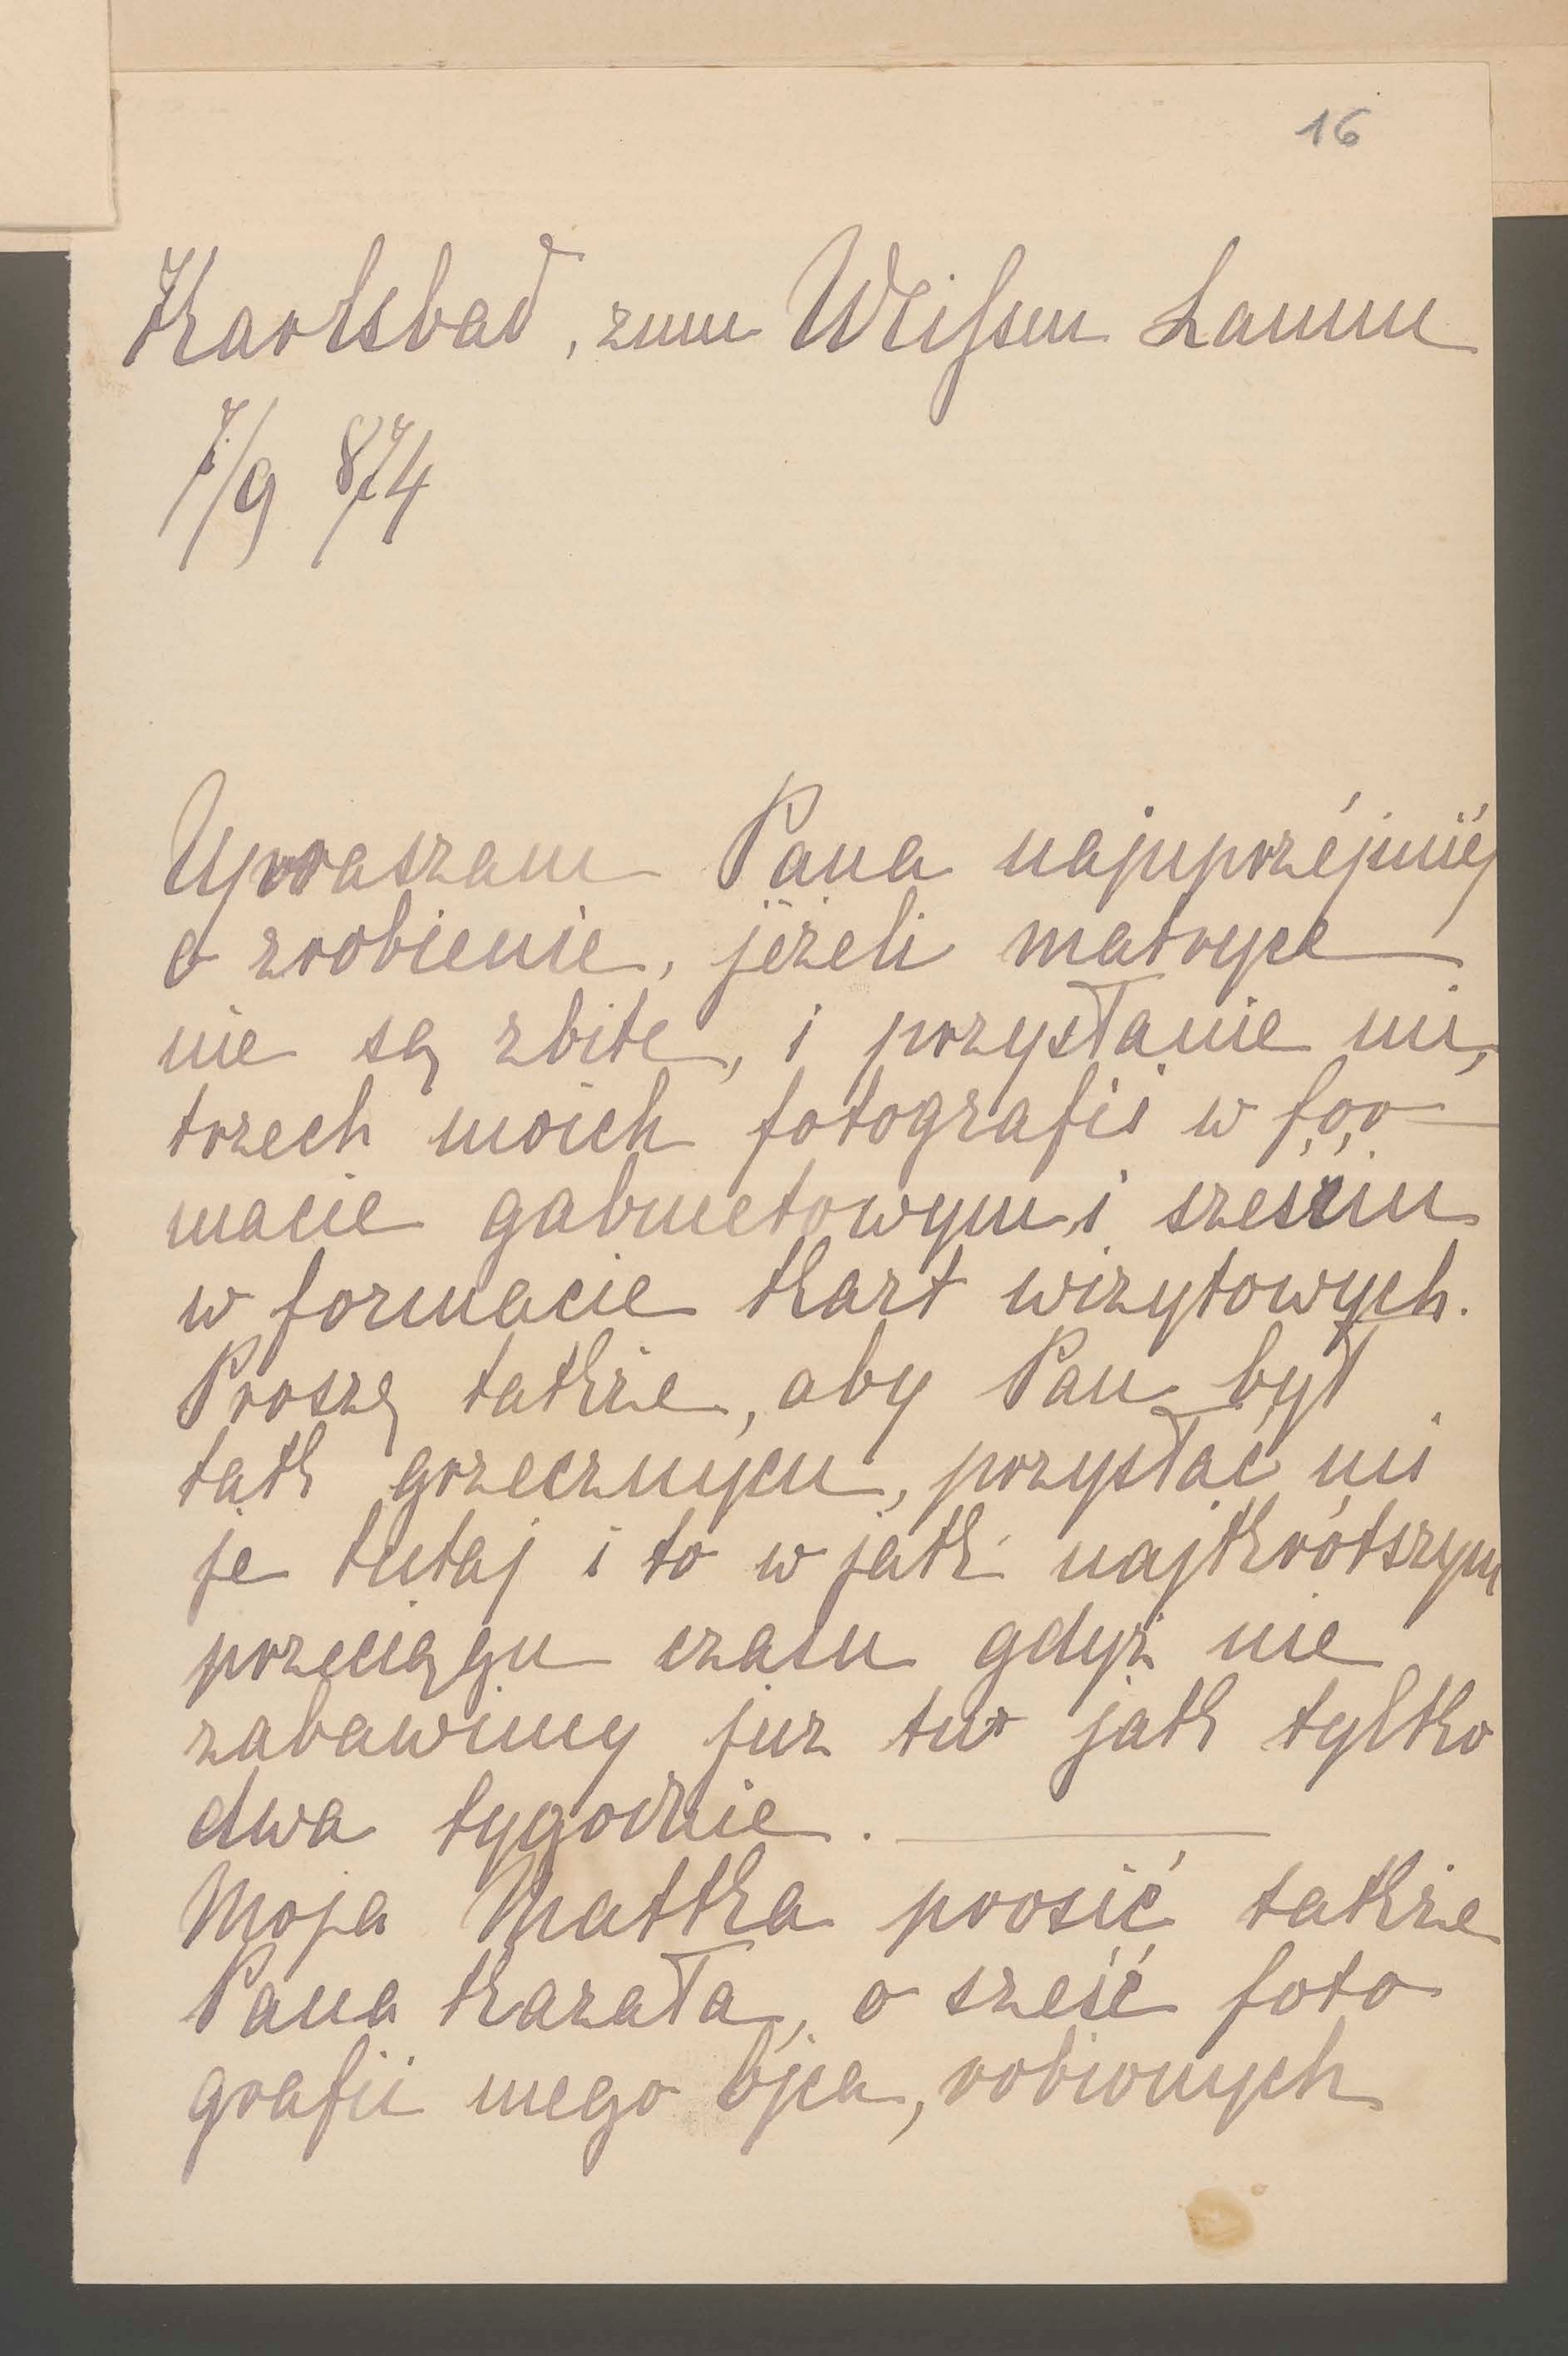 16
Karlsbad, zum Weißen Lamm
7/9 874
Upraszam Pana najuprzéjmiéj
o zrobienie, jeżeli matryce
nie są zbite, i przysłanie mi,
trzech moich fotografii w for-
macie gabinetowym i sześciu
w formacie kart wizytowych.
Proszę także, aby Pan był
tak grzecznym, przysłać mi
je tutaj i to w jak najkrótszym
przeciągu czasu gdyż nie
zabawimy juz tu jak tylko
dwa tygodnie. —
Moja Matka prosić także
Pana kazała, o sześć foto
grafii mego ojca, robionych